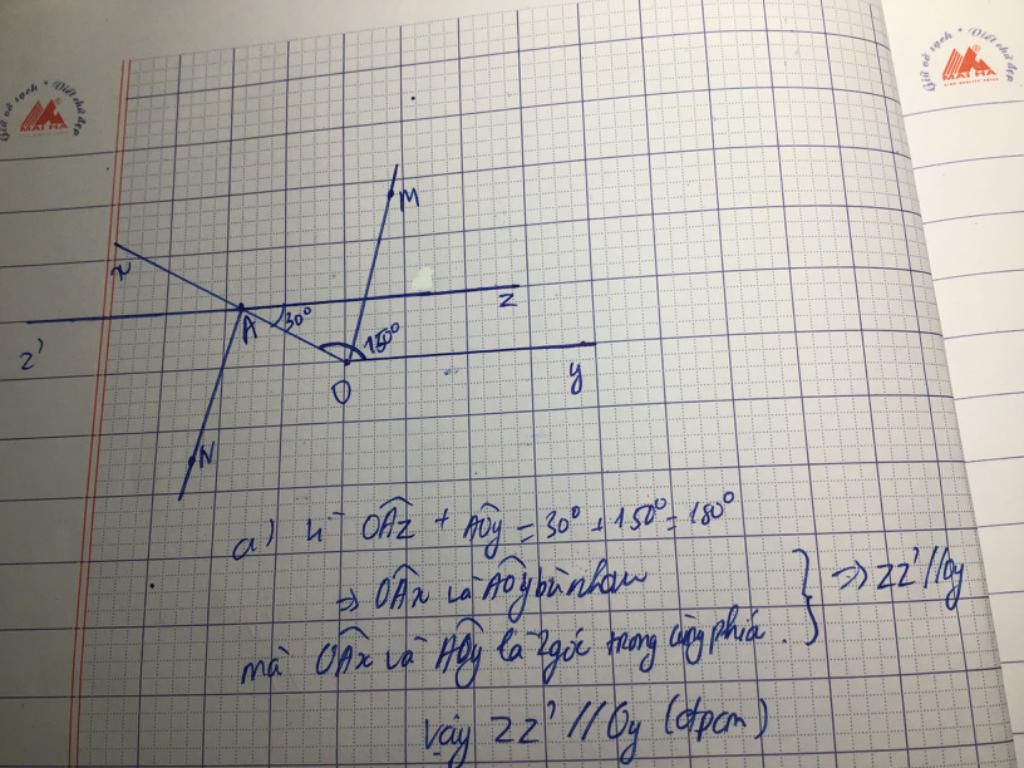 Giữ vở sạch • Viết chữ đẹp
MAI HA
Giữ vở sạch • Viết chữ đẹp
MAI HA
M
x
z
A
30°
150°
z'
O
y
N
a) OÂz + AÔy = 30° + 150° = 180°
=> OÂx và AÔy bù nhau
mà OÂx và AÔy là 2 góc trong cùng phía. } => zz' // Oy
Vậy zz' // Oy (đpcm)